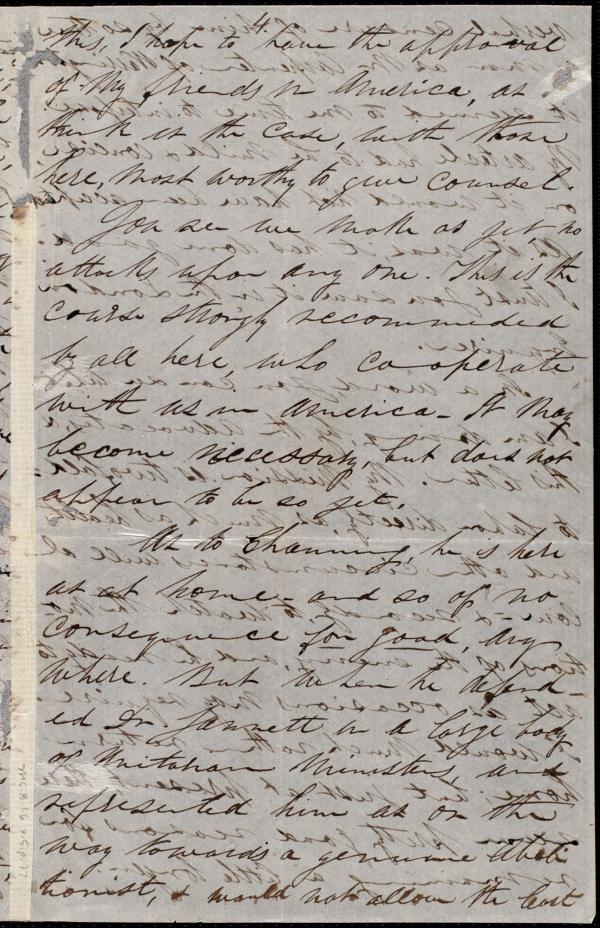 4.
this, I hope to have the approval
of my friends in America, as I
think is the case, with those
here, most worthy to give counsel.
You see we make as yet, no
attacks upon any one. This is the
course strongly recommended
by all here, who co-operate
with us in America - It may
become necessary, but does not
appear to be so yet.
As to Channing, he is here
as at home - and so of no
consequence for good, any
where. But when he defend-
ed Dr Gannett in a large body
of Unitarian Ministers, and
represented him as on the
way towards a genuine Aboli-
tionist, & would not allow the least